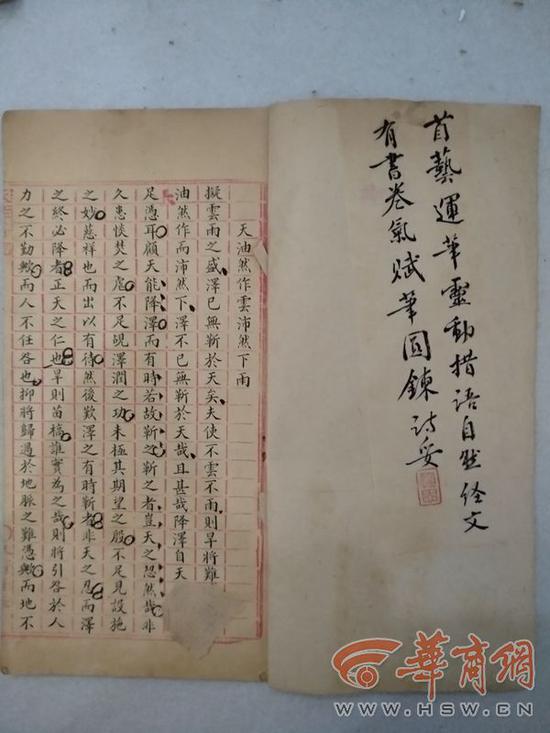 首藝運筆靈動措語自然經文
有書卷氣賦筆圓鍊詩妥
天油然作雲沛然下雨
擬雲雨之盛澤已無靳於天矣夫使不雲不雨則旱將難
油然作而沛然下澤不已無靳於天哉且甚哉降澤自天
足憑耳顧天能降澤而有時若故靳之靳之者豈天之忍然哉非
久患惔焚之虐不足硯澤潤之功未極其期望之殷不足見設施
之妙慈祥也而出以有待然後歎澤之有時靳者非天之忍而澤
之終必降者正天之仁也旱則苗槁誰實為之哉則將引咎於人
力之不勤歟而人不任咎也抑將歸過於地脈之難憑歟而地不
華商網
WWW.HSW.CN